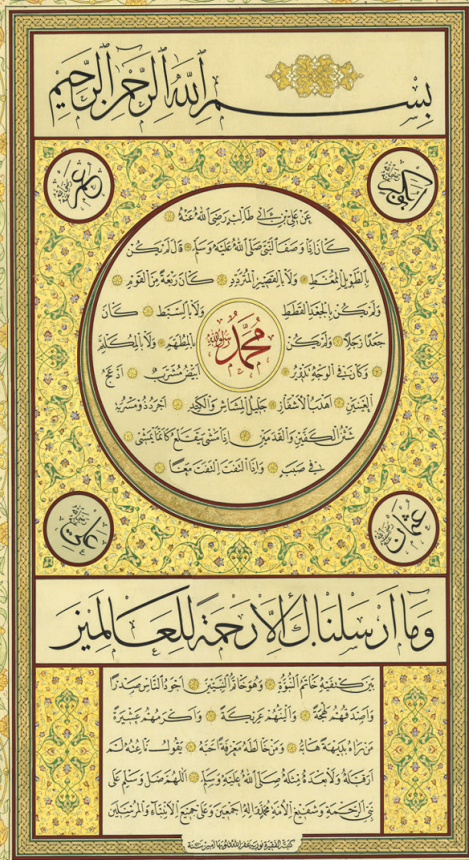 بسم الله الرحمن الرحيم
ابوبكر
عمر
عن علي بن ابي طالب رضي الله عنه
كان اذا وصف النبي صلى الله عليه وسلم قال لم يكن
بالطويل الممغط ولا بالقصير المتردد كان ربعة من القوم
ولم يكن بالجعد القطط ولا بالسبط كان
محمد
جعدا رجلا ولم يكن بالمطهم ولا بالمكلثم
وكان في الوجه تدوير ابيض مشرب ادعج
العينين اهدب الاشفار جليل المشاش والكتد اجرد ذو مسربة
شثن الكفين والقدمين اذا مشى يتقلع كانما يمشي
في صبب واذا التفت التفت معا
عثمان
علي
وما ارسلناك الا رحمة للعالمين
بين كتفيه خاتم النبوة وهو خاتم النبيين اجود الناس صدرا
واصدقهم لهجة والينهم عريكة واكرمهم عشيرة
من رآه بديهة هابه ومن خالطه معرفة احبه يقول ناعته لم
ار قبله ولا بعده مثله صلى الله عليه وسلم اللهم صل وسلم على
نبي الرحمة وشفيع الامة محمد وآله اجمعين وعلى جميع الانبياء والمرسلين